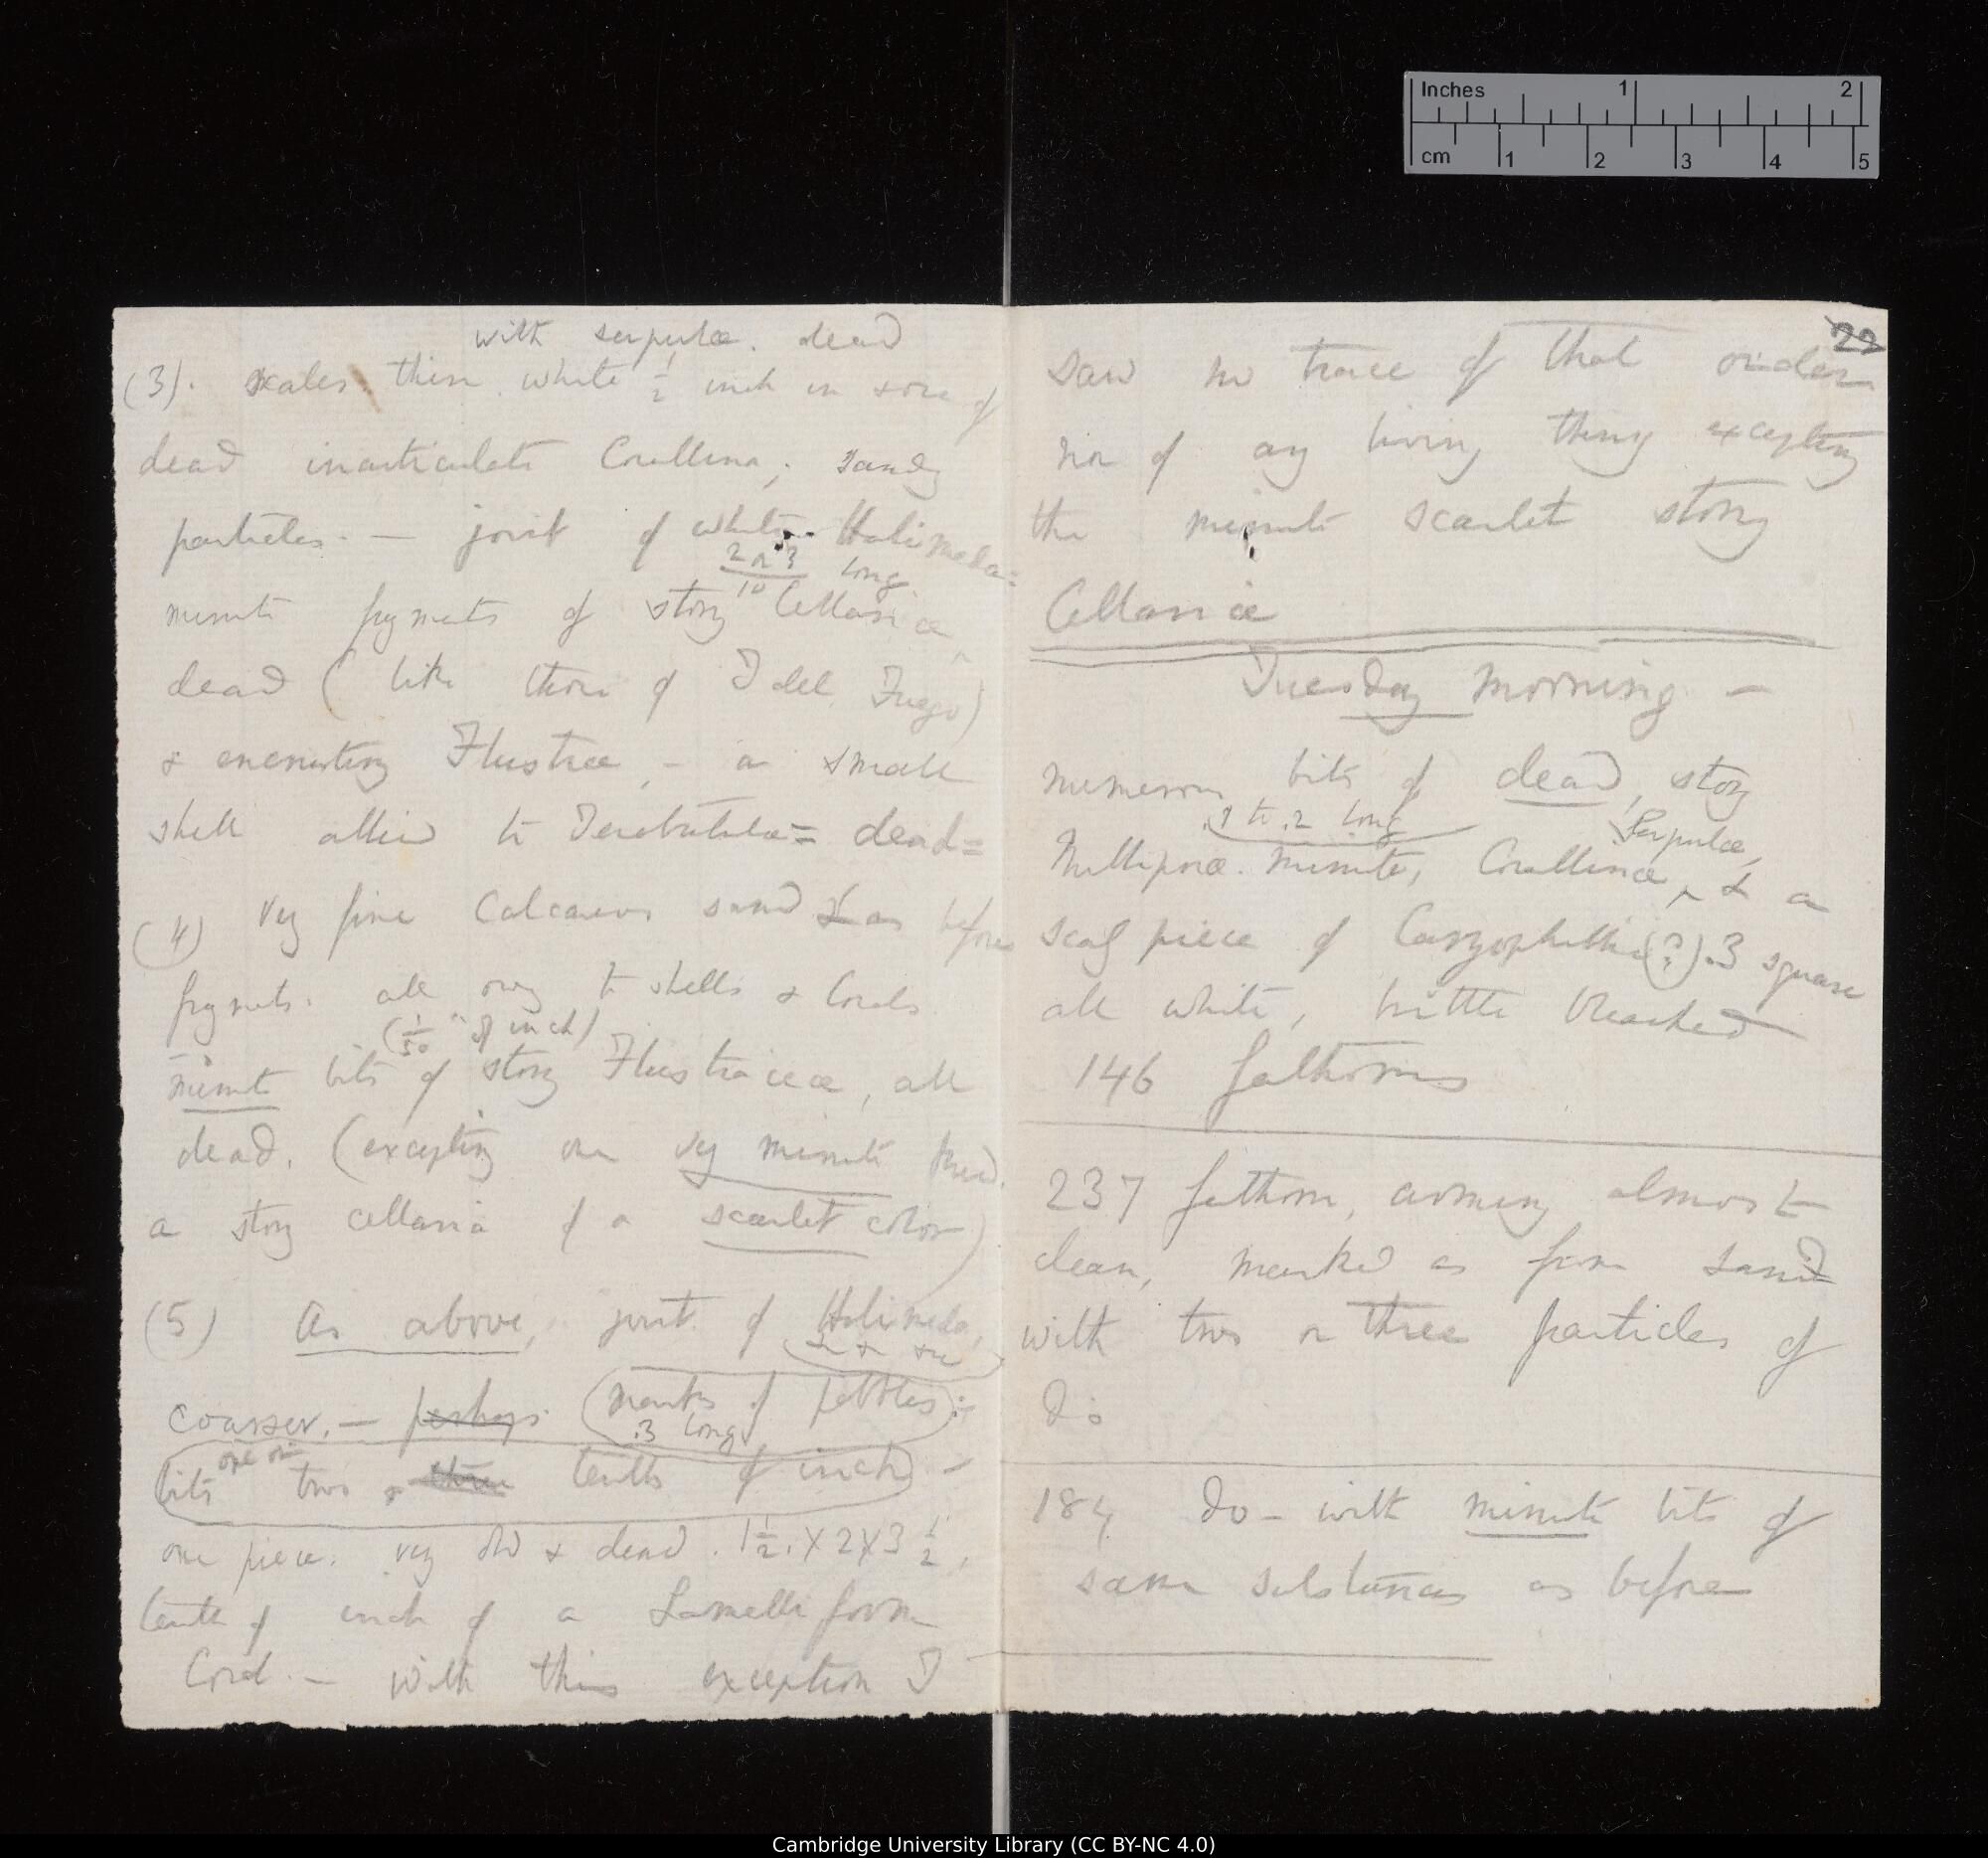 with serpulæ. dead
(3). scales thin white 1/2 inch in size of
dead inarticulate Corallina; sandy
particles. — joint of white Halimeda =
2 or 3/10 long
minute fragments of stony Cellariæ
dead (like those of T del Fuego)
& encrusting Flustræ, — a small
shell allied to Terebratula = dead =
(4) very fine Calcareous sand & as before
fragments. all owing to shells & Corals
(1/50" of inch)
minute bits of stony Flustraceæ, all
dead. (excepting one very minute
a stony cellaria of a scarlet color)
(5) As above, joint of Halimeda,
coarser. — perhaps (marks of pebbles):
.3 long
one or
bits two or three tenths of inch) —
one piece. very old & dead. 1 1/2. X 2 X 3 1/2,
tenth of inch of a Lamelliform
Coral. — With this exception I
22
saw no trace of that order
nor of any living thing excepting
the minute scarlet stony
Cellariæ
Tuesday morning —
numerous bits of dead, stony
.1 to .2 long
Serpulæ,
Nulliporæ. minute, Corallinæ ^ & a
scaly piece of Caryophyllia (?) .3 square
all white, brittle bleached
146 fathoms
237 fathom, arming almost
clean, marked as from sand
with two or three particles of
Do
184 Do — with minute bits of
same substances as before
Inches 1 2
cm 1 2 3 4 5
Cambridge University Library (CC BY-NC 4.0)